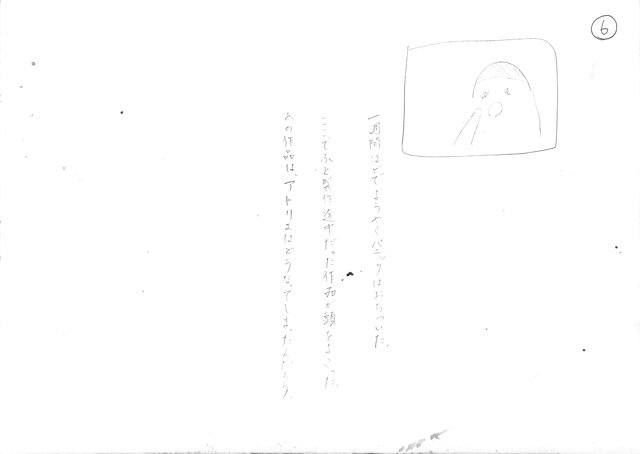 ⑥
一週間ほどでようやくパニックはおちついた。
ここでふと製作途中だった作品が頭をよぎった。
あの作品は、アトリエはどうなってしまったんだろう。